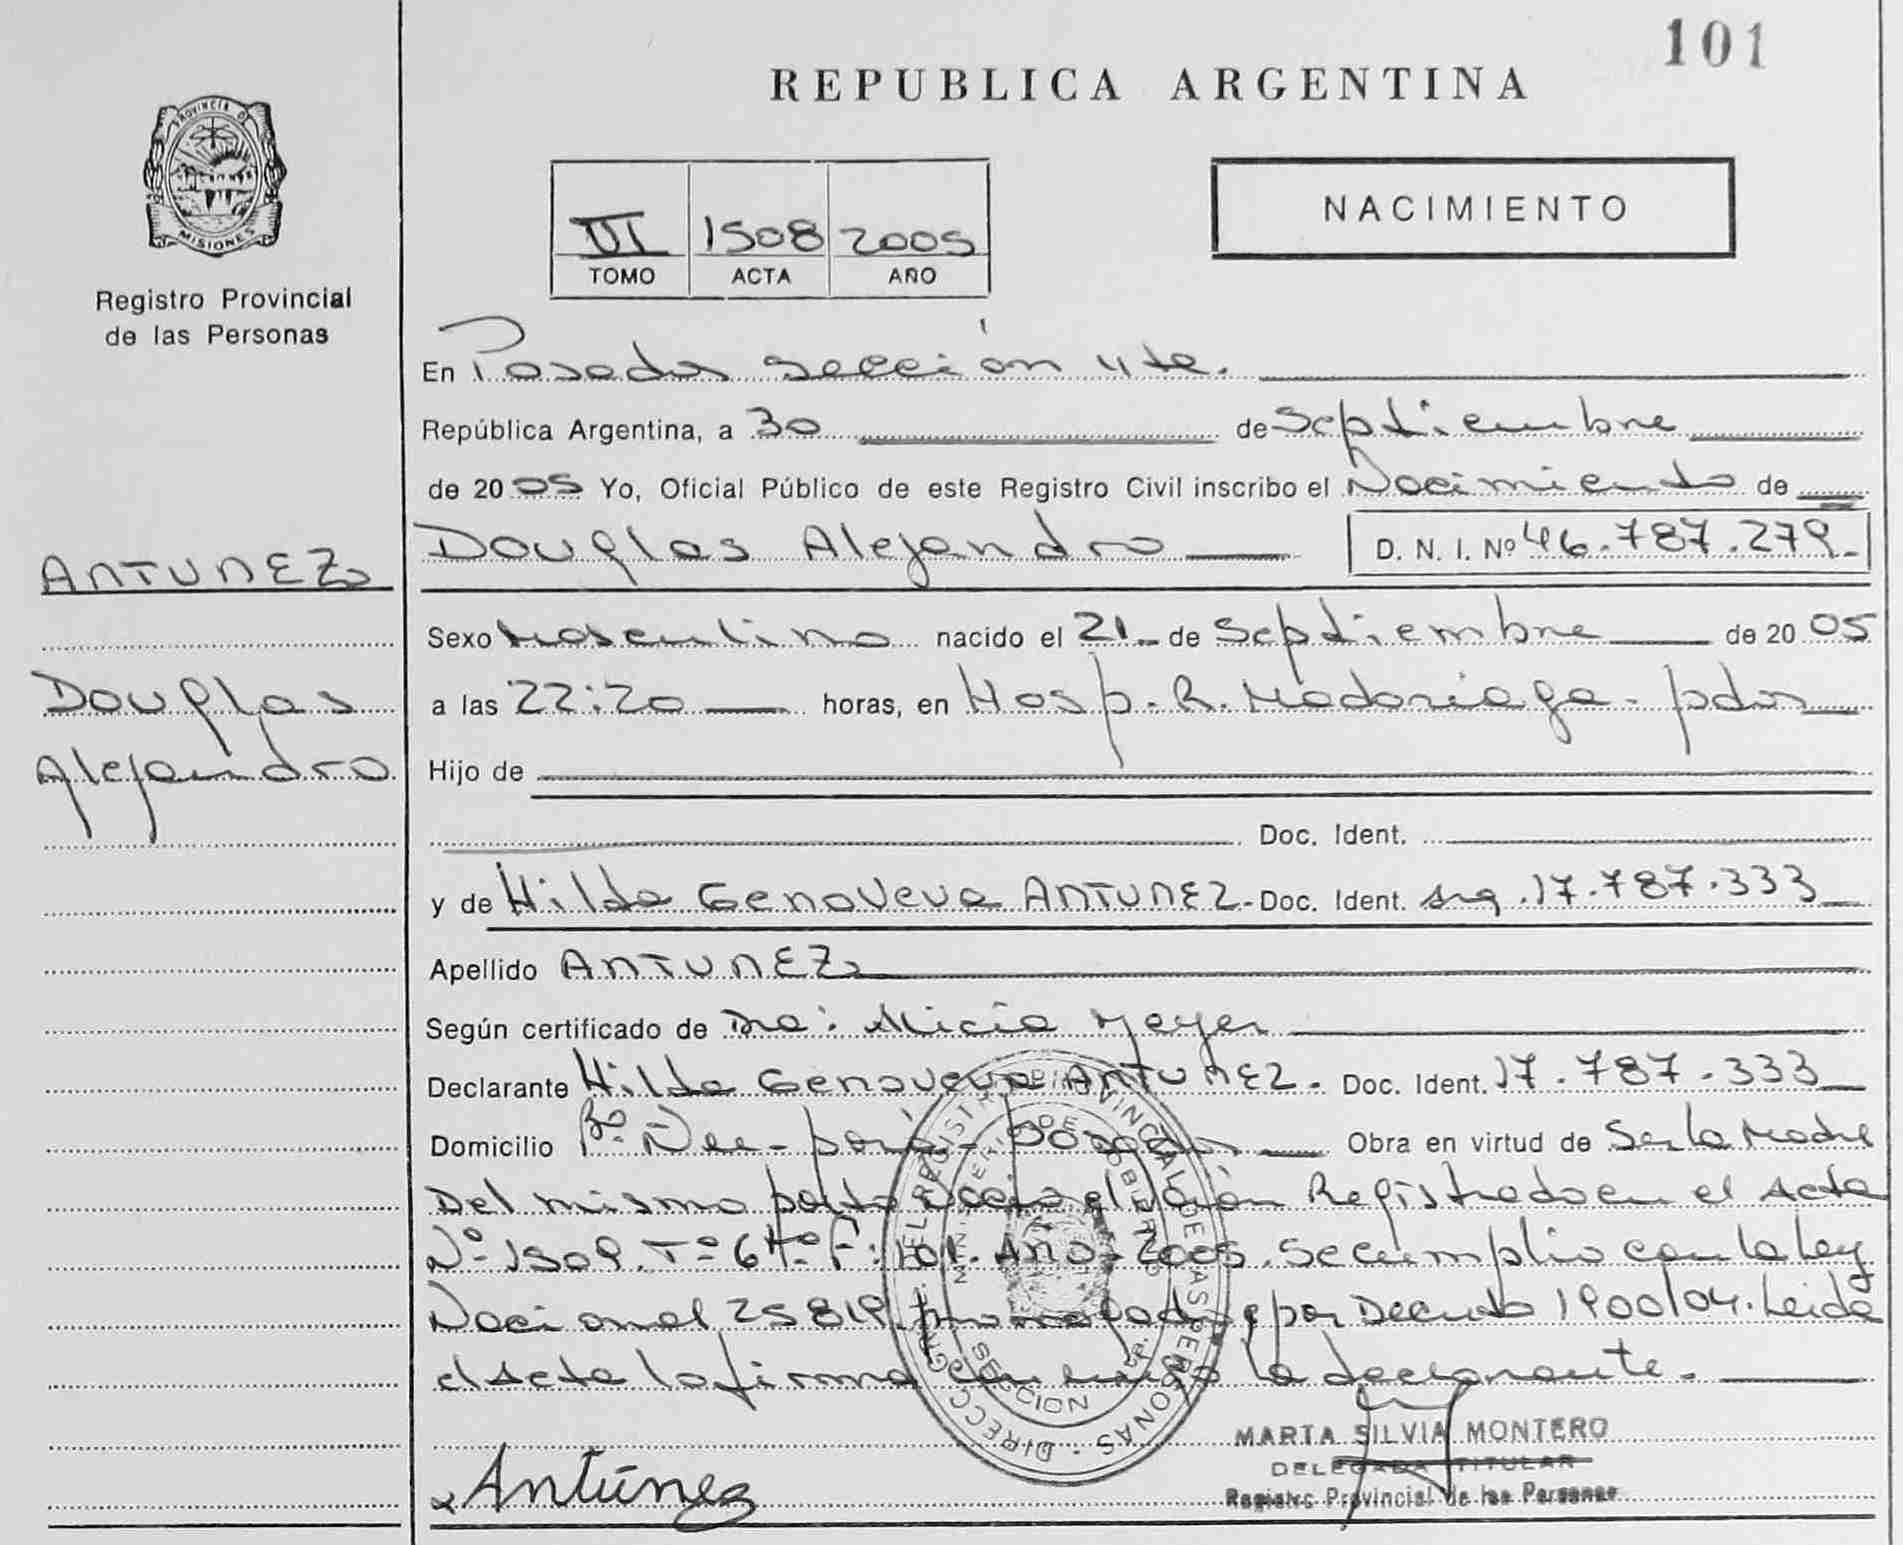 101
REPUBLICA ARGENTINA
PROVINCIA DE
MISIONES
Registro Provincial
de las Personas
VI 1508 2005
TOMO ACTA AÑO
NACIMIENTO
En Posadas sección 4te.
República Argentina, a 30 de Septiembre
de 2005 Yo, Oficial Público de este Registro Civil inscribo el Nacimiento de
Douglas Alejandro D. N. I. Nº 46.787.279.
ANTUNEZ
Sexo Masculino nacido el 21 de Septiembre de 2005
Douglas
Alejandro
a las 22:20 horas, en Hosp. R. Madariaga - pdas
Hijo de
Doc. Ident.
y de Hilda Genoveva ANTUNEZ - Doc. Ident. Arg. 17.787.333
Apellido ANTUNEZ
Según certificado de Dra: Alicia Meyer
Declarante Hilda Genoveva ANTUNEZ. Doc. Ident. 17.787.333
Domicilio Bº Ñee-porá - Posadas Obra en virtud de Ser la Madre
Del mismo parto Registrado en el Acta
Nº 1509. Tº 6to Fº: 101. Año 2005. Se cumplio con la Ley
Nacional 25819 por Decreto 1900/04. Leida
el Acta la firma conmigo la declarante.
DIRECCION GRAL. DEL REGISTRO PROVINCIAL DE LAS PERSONAS
MINISTERIO DE GOBIERNO
SECCION
Antúnez
MARTA SILVIA MONTERO
DELEGADA TITULAR
Registro Provincial de las Personas